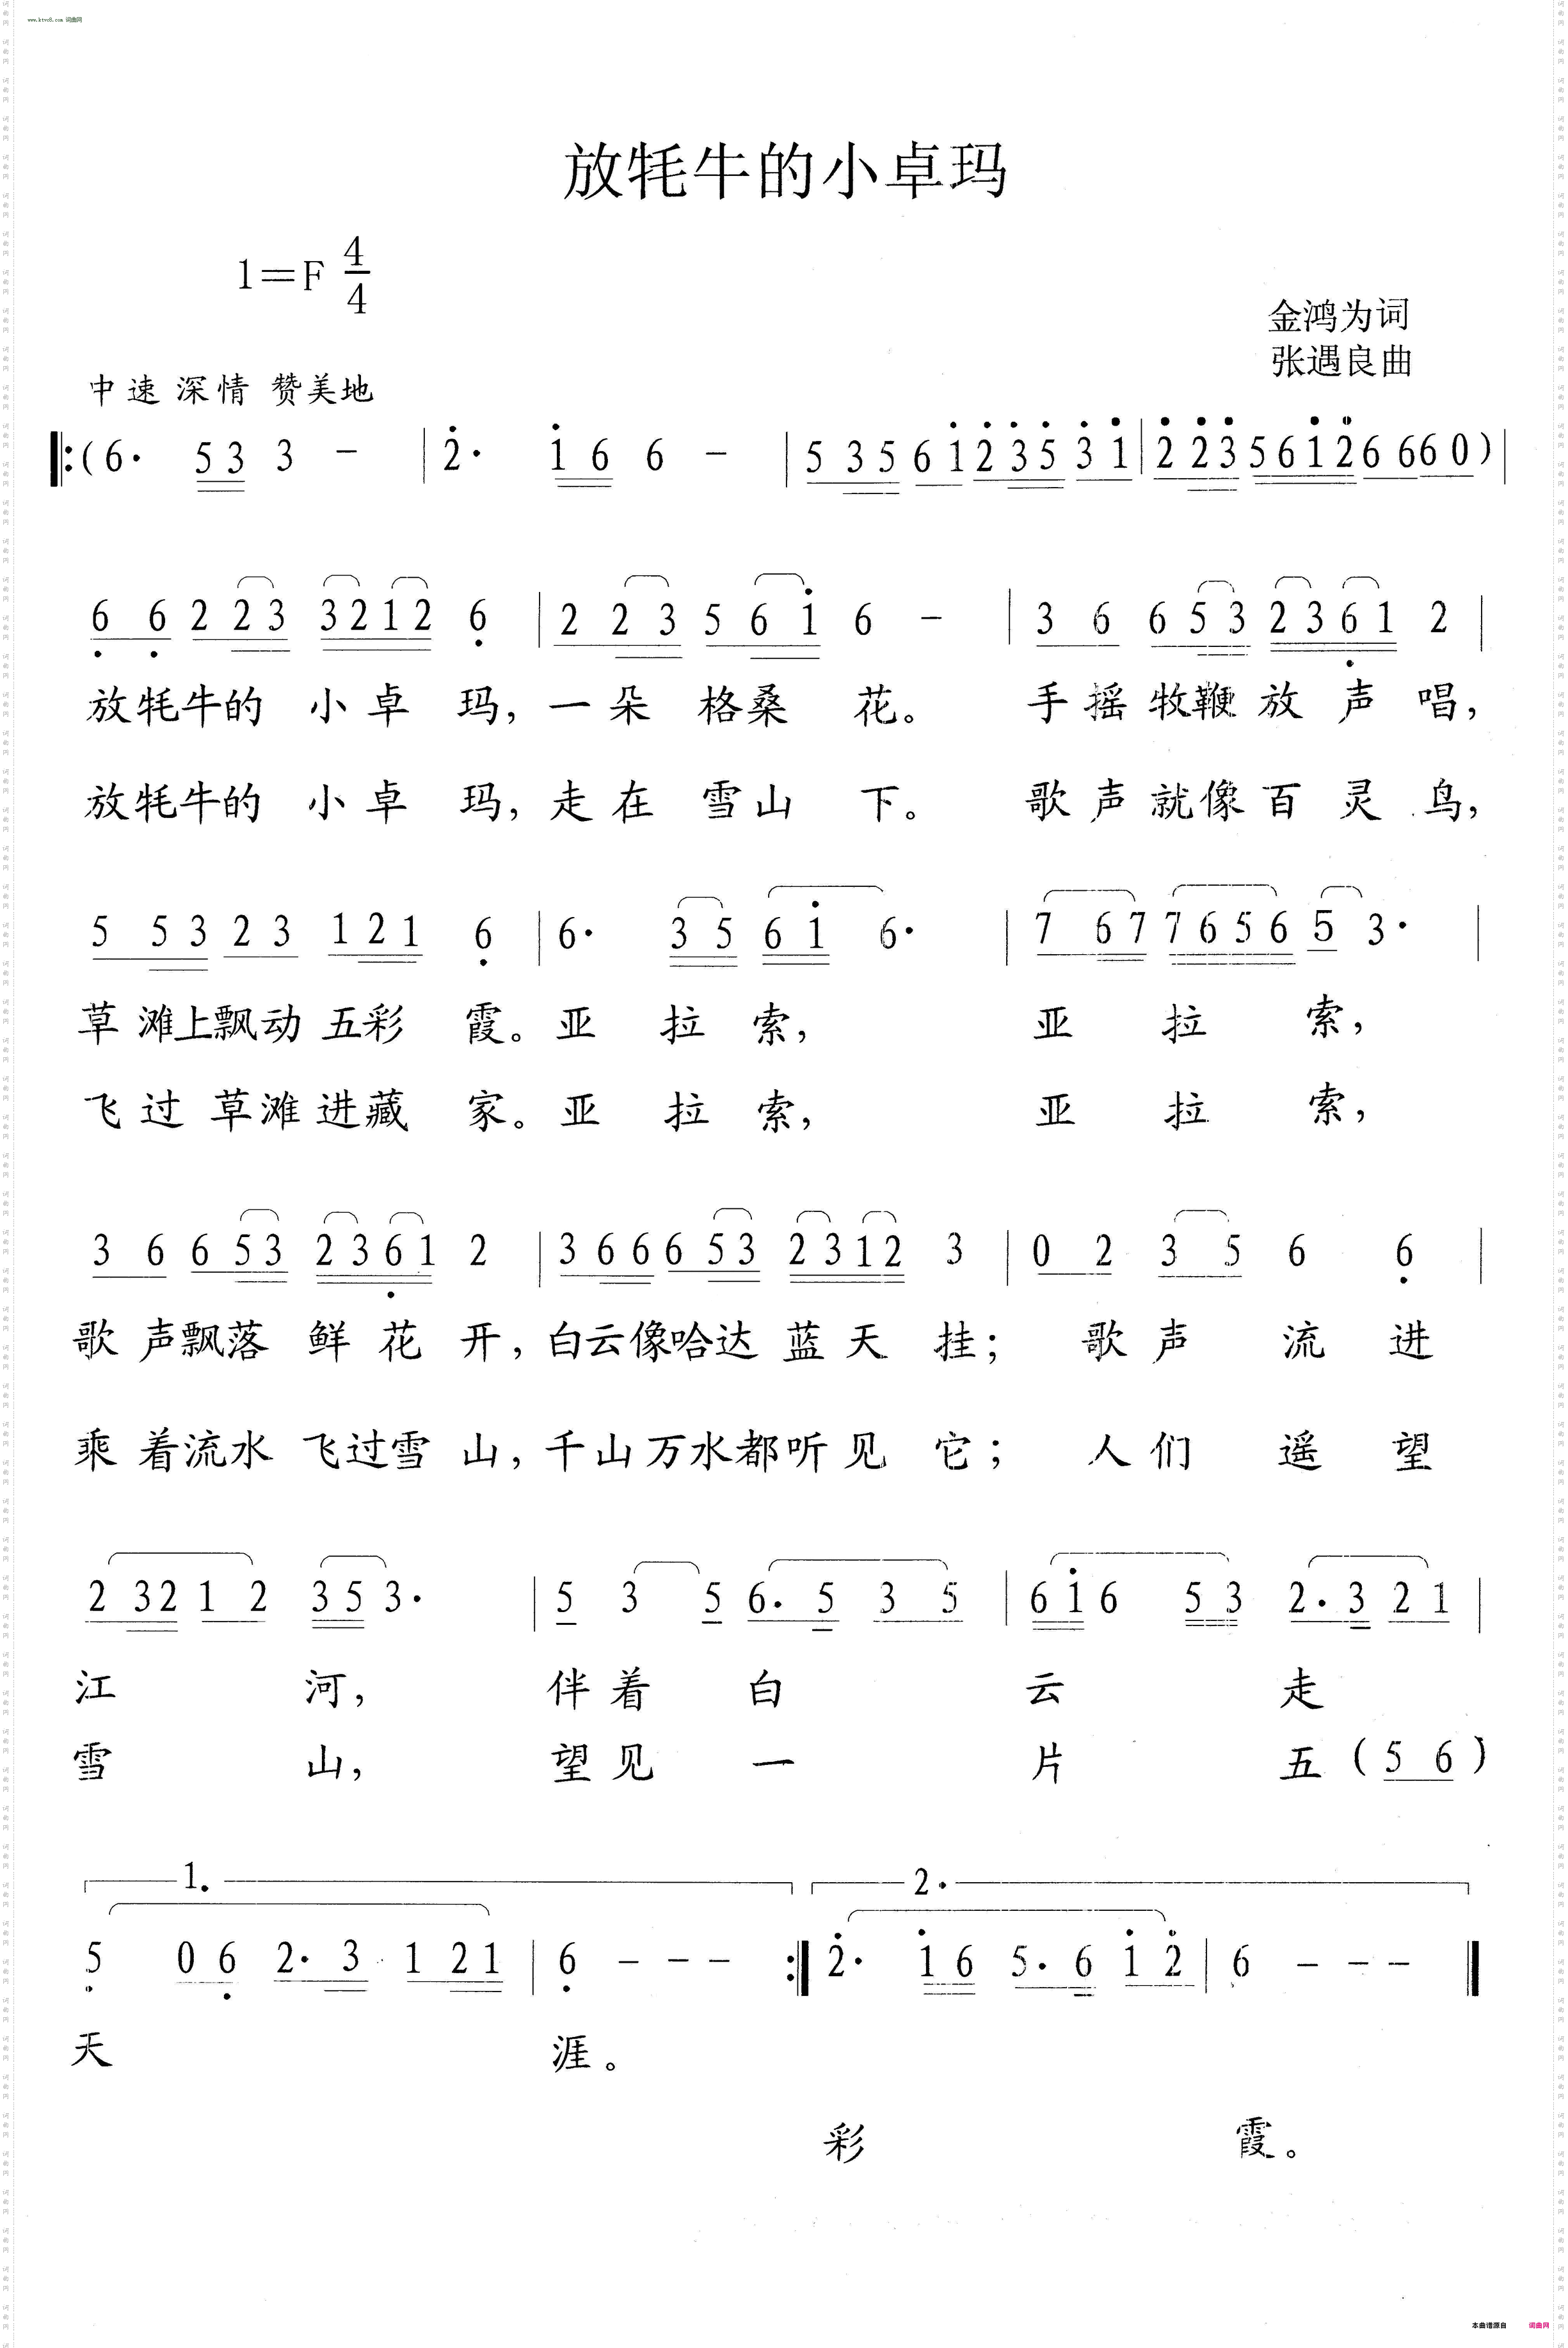 www.ktvc8.com 词曲网
放牦牛的小卓玛
1=F 4/4
金鸿为词
张遇良曲
中速 深情 赞美地
(6· 53 3 - | 2· 16 6 - | 535 61 235 31 | 223 5612 66 60) |
6 6 2 23 3212 6 | 2 23 5 61 6 - | 3 6 6 53 2361 2 |
放牦牛的 小卓 玛,一朵 格桑 花。 手摇牧鞭放声唱,
放牦牛的 小卓 玛,走在 雪山 下。 歌声就像百灵鸟,
5 53 23 121 6 | 6· 35 61 6· | 7 67 7656 5 3· |
草滩上飘动五彩 霞。亚 拉 索, 亚 拉 索,
飞过草滩进藏 家。亚 拉 索, 亚 拉 索,
3 6 6 53 2361 2 | 366 653 2312 3 | 0 2 3 5 6 6 |
歌声飘落 鲜花 开,白云像哈达蓝天 挂; 歌声 流 进
乘着流水 飞过雪 山,千山万水都听见 它; 人们 遥 望
2 32 1 2 35 3· | 5 3 5 6· 5 3 5 | 61 6 53 2· 3 21 |
江 河, 伴着 白 云 走
雪 山, 望见 一 片 五 (5 6)
1. 2.
5 06 2· 3 121 | 6 - - - :| 2· 16 5· 6 12 | 6 - - -
天 涯。
彩 霞。
本曲谱源自 词曲网